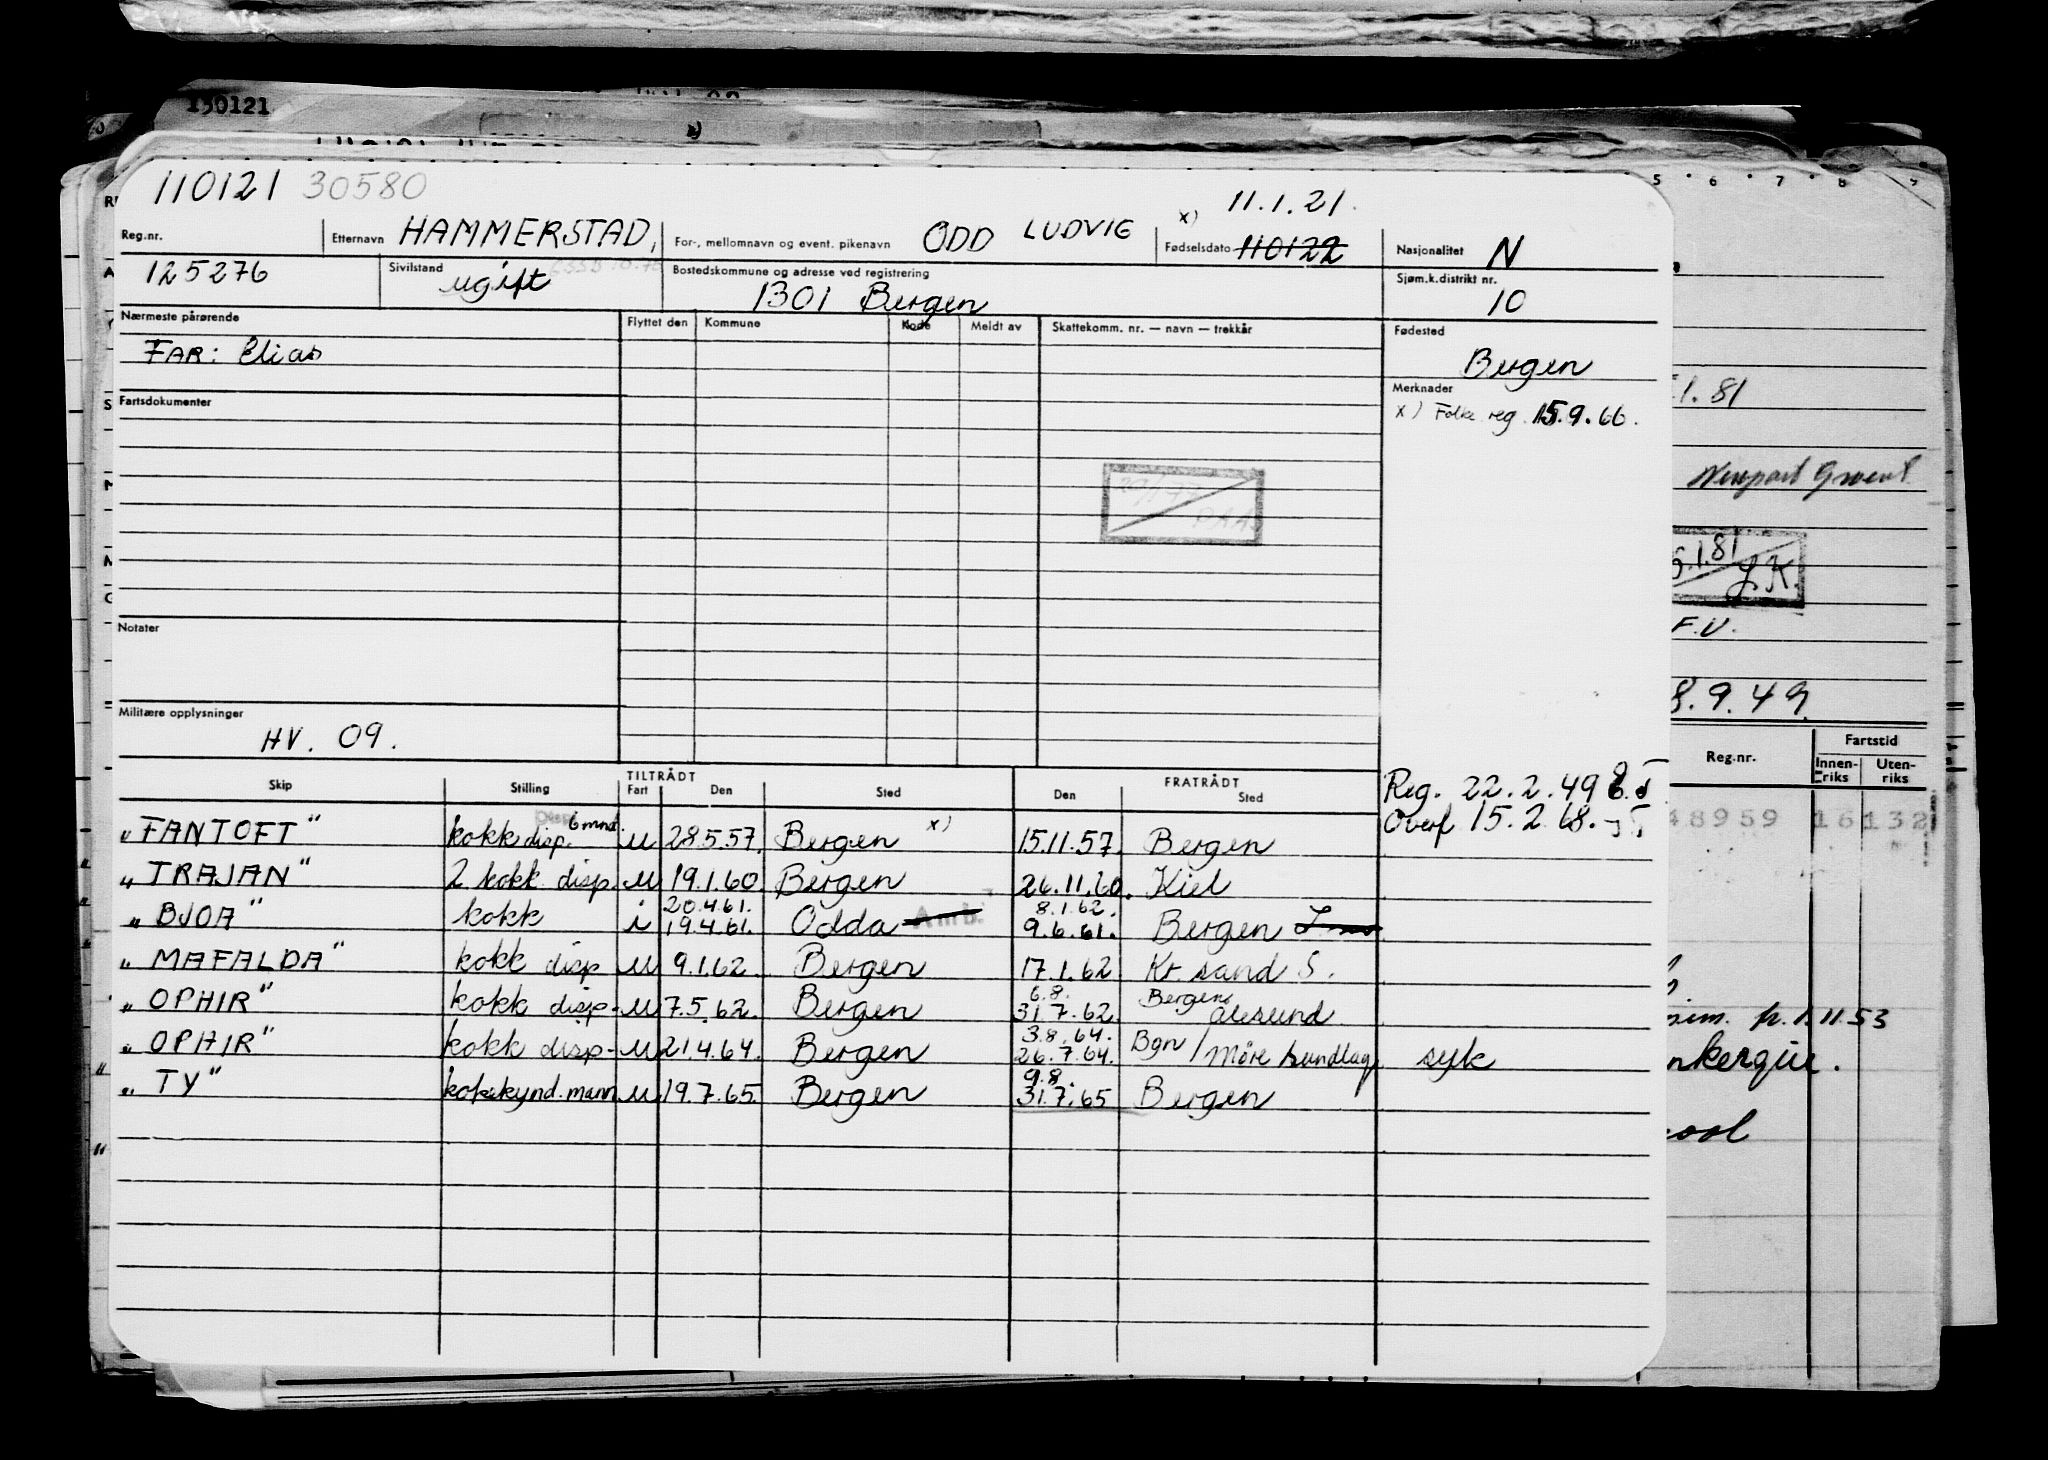 150121
110121 30580
11.1.21.
Reg.nr. Etternavn HAMMERSTAD, For-, mellomnavn og event. pikenavn ODD LUDVIG x) Fødselsdato 110122 Nasjonalitet N
125276 Sivilstand ugift Bostedskommune og adresse ved registrering 1301 Bergen Sjøm.k.distrikt nr. 10
Nærmeste pårørende Flyttet den Kommune Kode Meldt av Skattekomm. nr. — navn — trekkår Fødested
FAR: Elias Bergen
Fartsdokumenter Merknader
x) Folke reg 15.9.66.
Notater
Militære opplysninger
HV. 09.
TILTRÅDT FRATRÅDT
Skip Stilling Fart Den Sted Den Sted
Reg. 22.2.49
Overf 15.2.68.
"FANTOFT" kokk disp. 6 mnd. u 28.5.57. Bergen x) 15.11.57. Bergen
"TRAJAN" 2 kokk disp. u 19.1.60. Bergen 26.11.60. Kiel
20.4.61. 8.1.62.
"BJOA" kokk i 19.4.61. Odda 9.6.61. Bergen
"MAFALDA" kokk disp u 9.1.62. Bergen 17.1.62. Kr.sand S.
6.8. Bergen
"OPHIR" kokk disp. u 7.5.62. Bergen 31.7.62. Ålesund
3.8.64. Bgn
"OPHIR" kokk disp. u 21.4.64. Bergen 26.7.64. / Møre sundlag syk
9.8.
"TY" kokskynd.mann u 19.7.65. Bergen 31.7.65 Bergen
5 6 7 8 9
.1.81
Newport
.1.81
L.K.
F.V.
8.9.49
Reg.nr. Fartstid
Innenriks Utenriks
48959 16 132
1.11.53
nkerque.